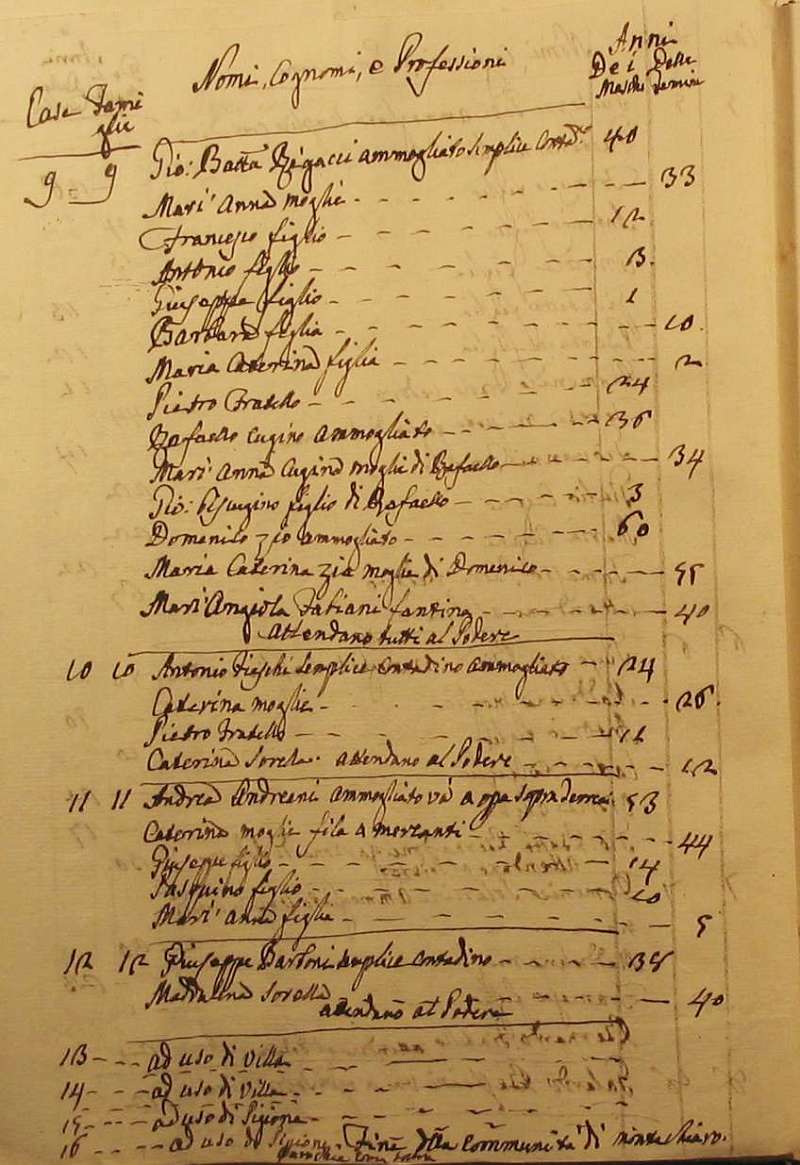 Anni
Nomi, Cognomi, e Professioni Dei Delle
Case Fami Maschi Femine
glie
9 9 Gio: Batta Rigacci ammogliato semplice Contad.e 40
Mari' Anna moglie 33
Francesco figlio 12
Antonio figlio 3.
Giuseppe figlio 1
Barbara figlia 10.
Maria Caterina figlia 2
Pietro Fratello 24
Rafaello Cugino Ammogliato 36
Mari' Anna Cugina moglie di Rafaello 34
Gio: figlio di Rafaello 3
Domenico zio ammogliato 60
Maria Caterina zia moglie di Domenico 55
Mari' Angiola Fabiani fantina 40
Attendano tutti al Podere
10 10 Antonio semplice Contadino Ammogliato 24
Caterina moglie 26
Pietro Fratello 11
Caterina Sorella. attendano al Podere 12
11 11 Andrea Andreani Ammogliato và a opa sopra terra 53
Caterina moglie fila a mercanti 44
Giuseppe figlio 14
Pasquino figlio 10
Mari' Anna figlia 5
12 12 Giuseppe Bartoni semplice Contadino 38
Maddalena Sorella 40
attendano al Podere
13 ad uso di Villa
14 ad uso di Villa
15 ad uso di
16 ad uso di Fine della Communità di monte chiaro.